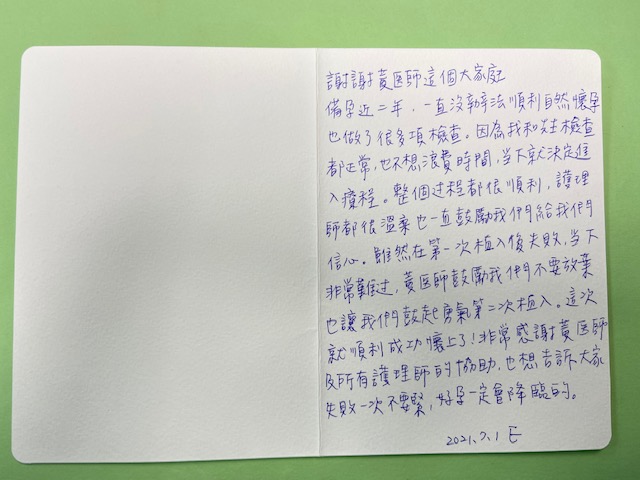 謝謝黃医師這個大家庭
備孕近二年，一直沒辦法順利自然懷孕
也做了很多項檢查。因為我和先生檢查
都正常，也不想浪費時間，当下就決定進
入療程。整個过程都很順利，護理
師都很溫柔也一直鼓勵我們給我們
信心。雖然在第一次植入後失敗，当下
非常難过，黃医師鼓勵我們不要放棄
也讓我們鼓起勇氣第二次植入。這次
就順利成功懷上了！非常感謝黃医師
及所有護理師的協助，也想告訴大家
失敗一次不要緊，好孕一定會降臨的。
2021.7.1 E